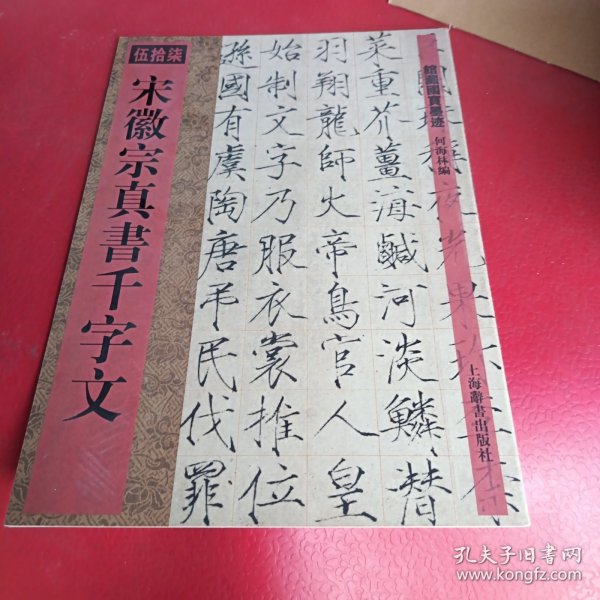 伍拾柒
宋徽宗真書千字文
館藏國寶墨迹
何海林編
上海辭書出版社
珠稱夜光果珍李柰
菜重芥薑海鹹河淡鱗潛
羽翔龍師火帝鳥官人皇
始制文字乃服衣裳推位
遜國有虞陶唐弔民伐罪
孔夫子旧书网
www.kongfz.com